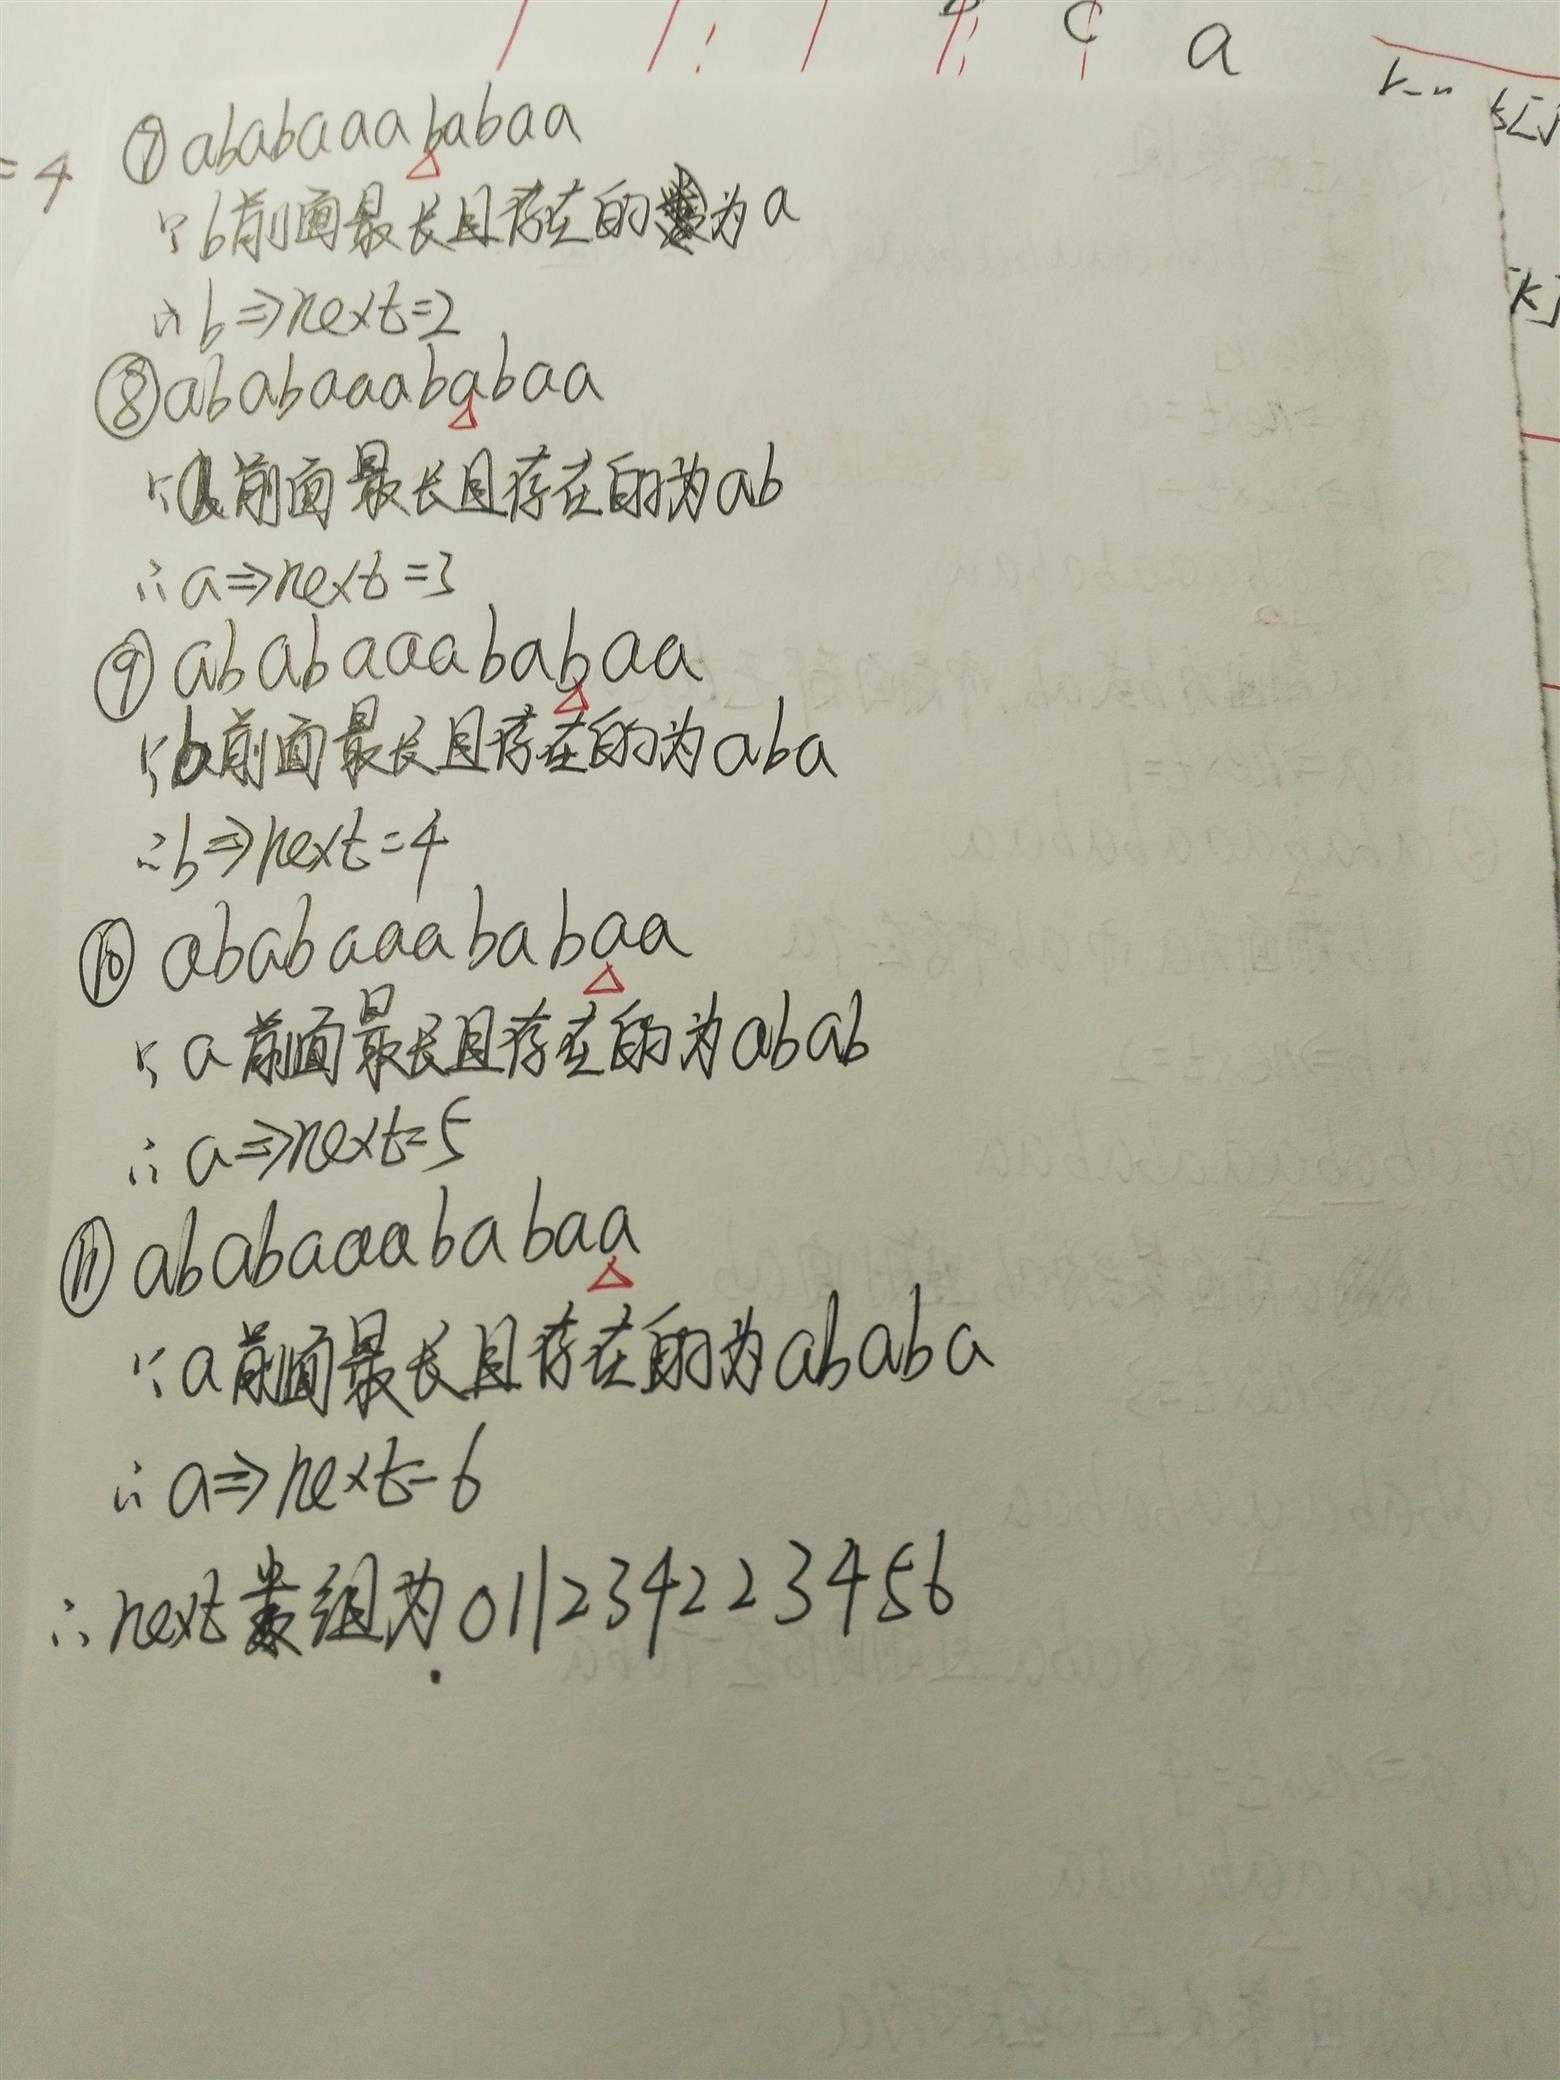 c a
=4
⑦ababaaababaa
∵b前面最长且存在的为a
∴b⇒next=2
⑧ababaaababaa
∵a前面最长且存在的为ab
∴a⇒next=3
⑨ababaaababaa
∵b前面最长且存在的为aba
∴b⇒next=4
⑩ababaaababaa
∵a前面最长且存在的为abab
∴a⇒next=5
⑪ababaaababaa
∵a前面最长且存在的为ababa
∴a⇒next=6
∴next数组为011234223456